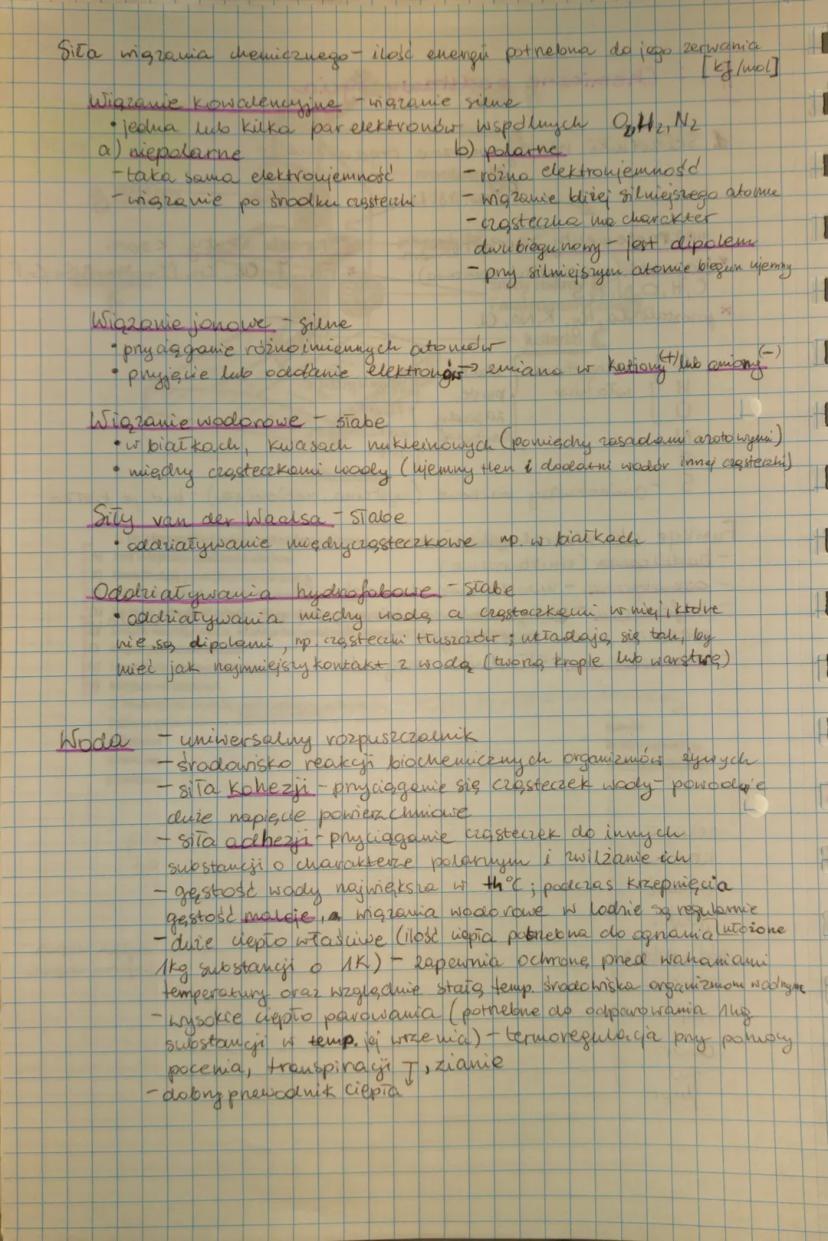 Siła wiązania chemicznego - ilość energii potrzebna do jego zerwania
[kJ/mol]
Wiązanie kowalencyjne - wiązanie silne
• jedna lub kilka par elektronów wspólnych O₂, H₂, N₂
a) niepolarne
- taka sama elektroujemność
- wiązanie po środku cząsteczki
b) polarne
- różna elektroujemność
- wiązanie bliżej silniejszego atomu
- cząsteczka ma charakter
dwubiegunowy - jest dipolem
- przy silniejszym atomie biegun ujemny
Wiązanie jonowe - silne
• przyciąganie różnoimiennych atomów
• przyjęcie lub oddanie elektronów → zmiana w kationy(+) lub aniony(-)
Wiązanie wodorowe - słabe
• w białkach, kwasach nukleinowych (pomiędzy zasadami azotowymi)
• między cząsteczkami wody (ujemny tlen i dodatni wodór innej cząsteczki)
Siły van der Waalsa - słabe
• oddziaływanie międzycząsteczkowe np. w białkach
Oddziaływania hydrofobowe - słabe
• oddziaływania między wodą a cząsteczkami w niej, które
nie są dipolami, np cząsteczki tłuszczów; układają się tak, by
mieć jak najmniejszy kontakt z wodą (tworzą krople lub warstwę)
Woda - uniwersalny rozpuszczalnik
- środowisko reakcji biochemicznych organizmów żywych
- siła kohezji - przyciąganie się cząsteczek wody - powoduje
duże napięcie powierzchniowe
- siła adhezji - przyciąganie cząsteczek do innych
substancji o charakterze polarnym i zwilżanie ich
- gęstość wody największa w 4°C; podczas krzepnięcia
gęstość maleje, a wiązania wodorowe w lodzie są regularnie
ułożone
- duże ciepło właściwe (ilość ciepła potrzebna do ogrzania
1kg substancji o 1K) - zapewnia ochronę przed wahaniami
temperatury oraz względnie stałą temp. środowiska organizmom wodnym
- wysokie ciepło parowania (potrzebne do odparowania 1kg
substancji w temp. jej wrzenia) - termoregulacja przy pomocy
pocenia, transpiracji, ziania
- dobry przewodnik ciepła